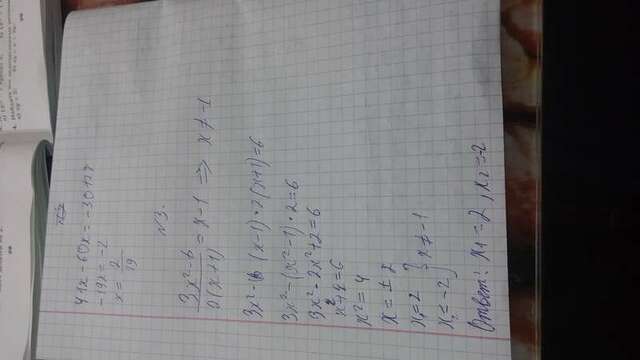 41x - 60x = -30 + 28
-19x = -2
x = 2/19
N3.
(3x² - 6)/(2(x+1)) = x - 1 ⇒ x ≠ -1
3x² - (x-1)·2(x+1) = 6
3x² - (x² - 1)·2 = 6
3x² - 2x² + 2 = 6
x² + 2 = 6
x² = 4
x = ± 2
x₁ = 2 } x ≠ -1
x₂ = -2
Ответ: x₁ = 2, x₂ = -2